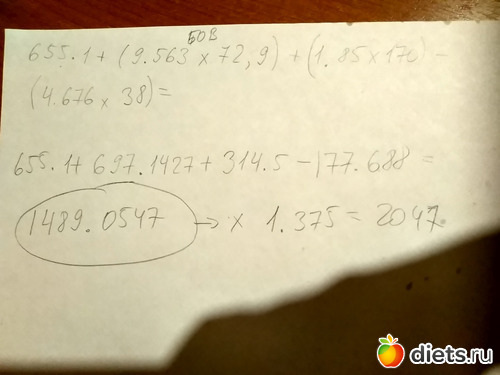 БОВ
655.1 + (9.563 x 72,9) + (1.85 x 170) -
(4.676 x 38) =
655.1 + 697.1427 + 314.5 - 177.688 =
1489.0547 → x 1.375 = 2047.
diets.ru